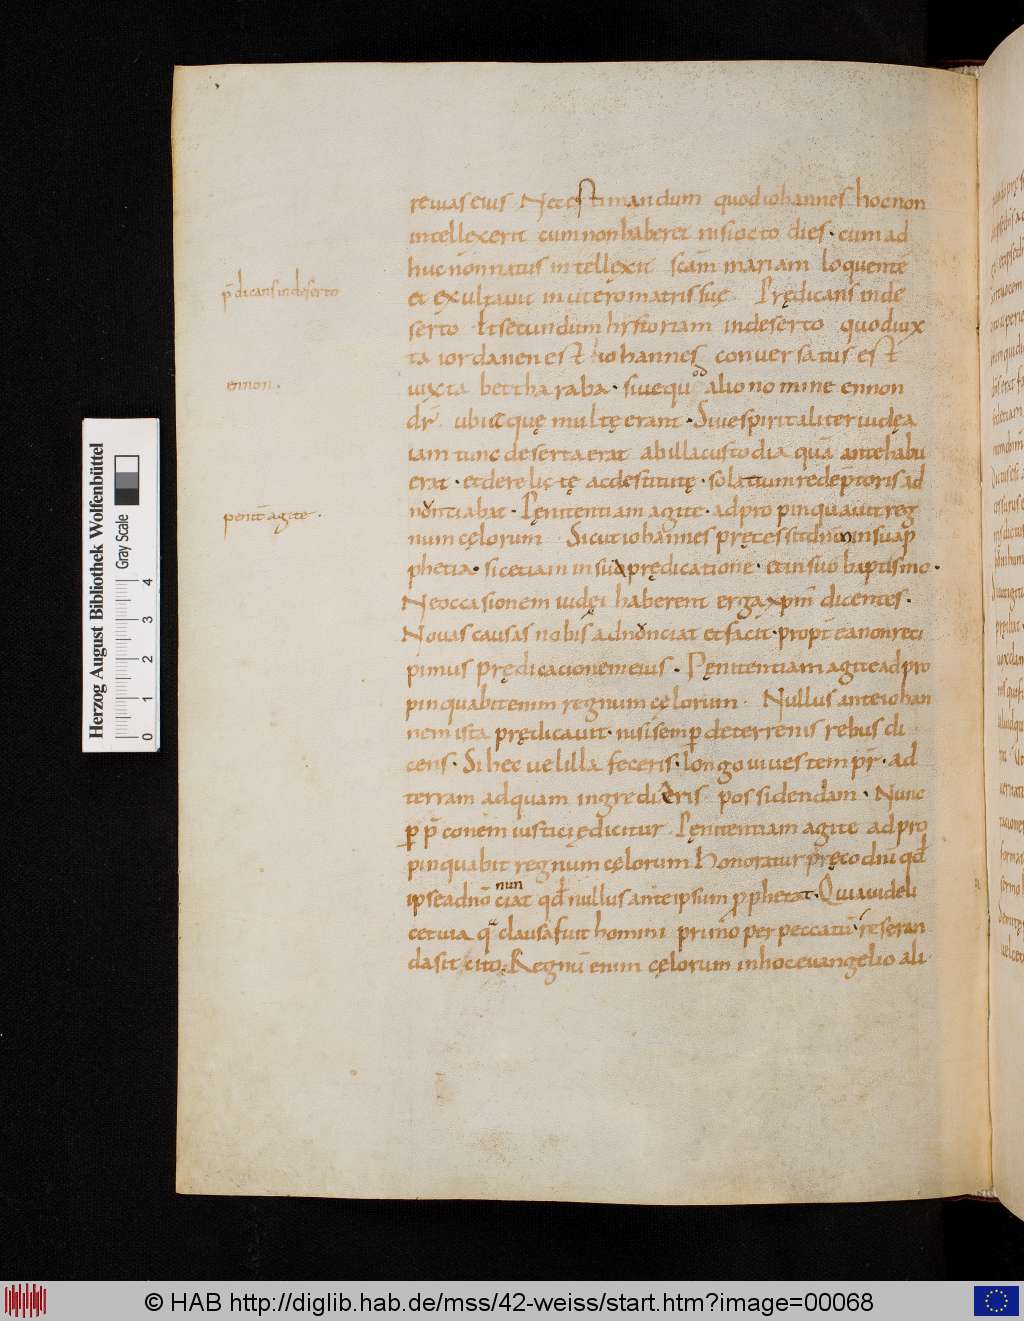 re vias eius Nec estimandum quod iohannes hoc non
intellexerit cum non haberet nisi octo dies · cum ad
huc non natus intellexit scām mariam loquentē
et exultavit in utero matris suę Prędicans in de
p̄dicans in deserto
serto Et secundum historiam in deserto quod iux
ta iordanen est iohannes conversatus est
iuxta bettharaba · sive quod alio nomine ennon
ennon ·
dr̄ ubi ęquę multę erant · Sive spiritaliter iudęa
iam tunc deserta erat ab illa custodia quā ante habu
erat · et derelictę ac destitutę · solatium redēptoris ad
nontiabat · Pęnitentiam agite · adpropinquavit reg
penit̄ agite ·
num cęlorum Sicut iohannes pręcessit dn̄m in sua p
phetia · sic etiam in sua prędicatione · et in suo baptismo ·
Ne occasionem iudęi haberent erga xp̄m dicentes ·
Novas causas nobis adnunciat et facit · propt̄ ea non reci
pimus prędicacionem eius · Pęnitentiam agite adpro
pinquabit enim regnum cęlorum · Nullus ante iohan
nem ista prędicavit · nisi semp de terrenis rebus di
cens · Si hec vel illa feceris · longo vives tempr̄ · ad
terram ad quam ingredieris possidendam · Nunc
p p̄conem iusticię dicitur Pęnitentiam agite adpro
pinquabit regnum cęlorum Honoratur pręco dn̄i qđ
ipse adnō nun ciat qđ nullus ante ipsum pphetat · Quia videli
cet via quę clausa fuit homini primo per peccatū · reseran
da sit cito · Regnū enim cęlorum in hoc evangelio ali
Herzog August Bibliothek Wolfenbüttel
Gray Scale
0 1 2 3 4
© HAB http://diglib.hab.de/mss/42-weiss/start.htm?image=00068